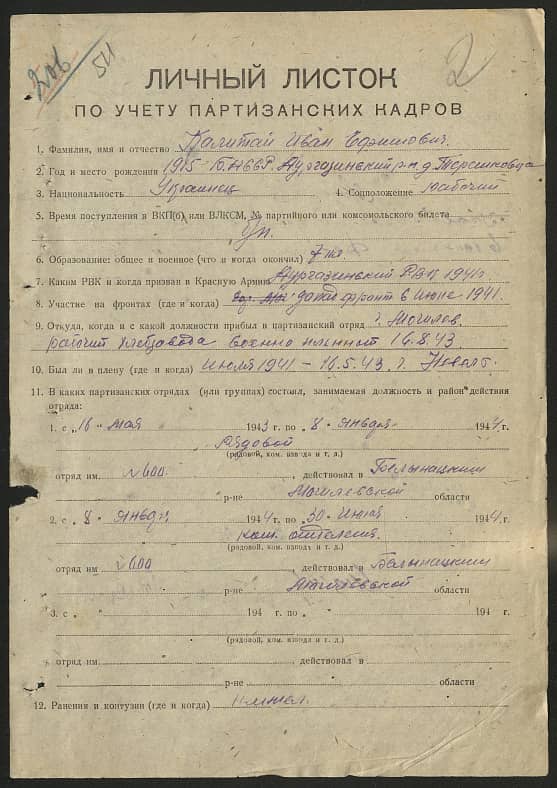 206
511
2
ЛИЧНЫЙ ЛИСТОК
ПО УЧЕТУ ПАРТИЗАНСКИХ КАДРОВ
1. Фамилия, имя и отчество Калитай Иван Ефимович.
2. Год и место рождения 1915 БАССР. Аургазинский р-н д.
3. Национальность Украинец 4. Соцположение рабочий
5. Время поступления в ВКП(б) или ВЛКСМ, № партийного или комсомольского билета
6. Образование: общее и военное (что и когда окончил) 7 кл.
7. Каким РВК и когда призван в Красную Армию Аургазинский РВК 1941г.
8. Участие на фронтах (где и когда) запад фронт в июне 1941.
9. Откуда, когда и с какой должности прибыл в партизанский отряд г. Могилев.
рабочий хлебзавода военно пленный 16.8.43
10. Был ли в плену (где и когда) июля 1941 – 16.5.43 г.
11. В каких партизанских отрядах (или группах) состоял, занимаемая должность и район действия
отряда:
1. с „16" мая 1943 г. по „8" января 1944 г.
Рядовой
(рядовой, ком. взвода и т. д.)
отряд им. №600, действовал в Белыницкий
р-не Могилевской области
2. с „8" январь 1944 г. по „30" июня 1944 г.
ком. отделения.
(рядовой, ком. взвода и т. д.)
отряд им. №600, действовал в Белыницкий
р-не Могилевской области
3. с 194 г. по 194 г.
(рядовой, ком. взвода и т. д.)
отряд им. , действовал в
р-не области
12. Ранения и контузии (где и когда)